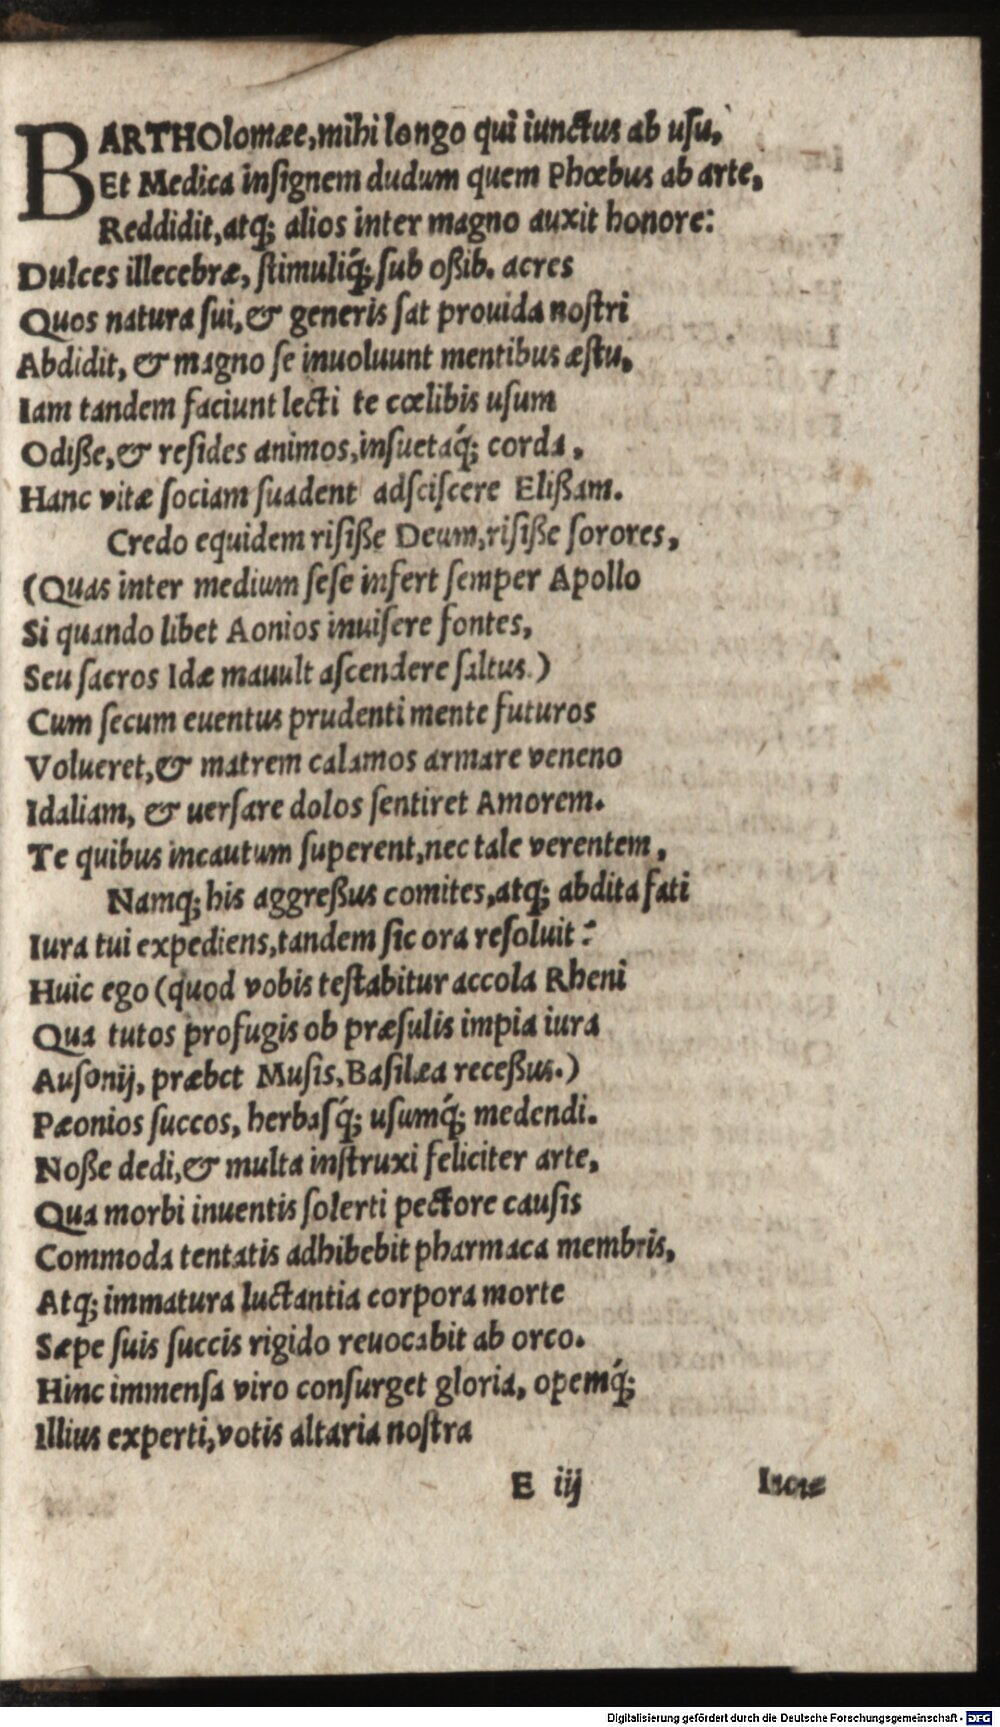 BARTHOlomæe, mihi longo qui iunctus ab usu,
Et Medica insignem dudum quem Phœbus ab arte,
Reddidit, atq; alios inter magno auxit honore:
Dulces illecebræ, stimuliq́; sub oßib. acres
Quos natura sui, & generis sat prouida nostri
Abdidit, & magno se inuoluunt mentibus æstu,
Iam tandem faciunt lecti te cœlibis usum
Odiße, & resides animos, insuetaq́; corda,
Hanc vitæ sociam suadent adsciscere Elißam.
Credo equidem risiße Deum, risiße sorores,
(Quas inter medium sese infert semper Apollo
Si quando libet Aonios inuisere fontes,
Seu sacros Idæ mauult ascendere saltus.)
Cum secum euentus prudenti mente futuros
Volueret, & matrem calamos armare veneno
Idaliam, & uersare dolos sentiret Amorem.
Te quibus incautum superent, nec tale verentem,
Namq; his aggreßus comites, atq; abdita fati
Iura tui expediens, tandem sic ora resoluit:
Huic ego (quod vobis testabitur accola Rheni
Qua tutos profugis ob præsulis impia iura
Ausonij, præbet Musis, Basilæa receßus.)
Pæonios succos, herbasq́; usumq́; medendi.
Noße dedi, & multa instruxi feliciter arte,
Qua morbi inuentis solerti pectore causis
Commoda tentatis adhibebit pharmaca membris,
Atq; immatura luctantia corpora morte
Sæpe suis succis rigido reuocabit ab orco.
Hinc immensa viro consurget gloria, opemq́;
Illius experti, votis altaria nostra
E iij
Digitalisierung gefördert durch die Deutsche Forschungsgemeinschaft - DFG